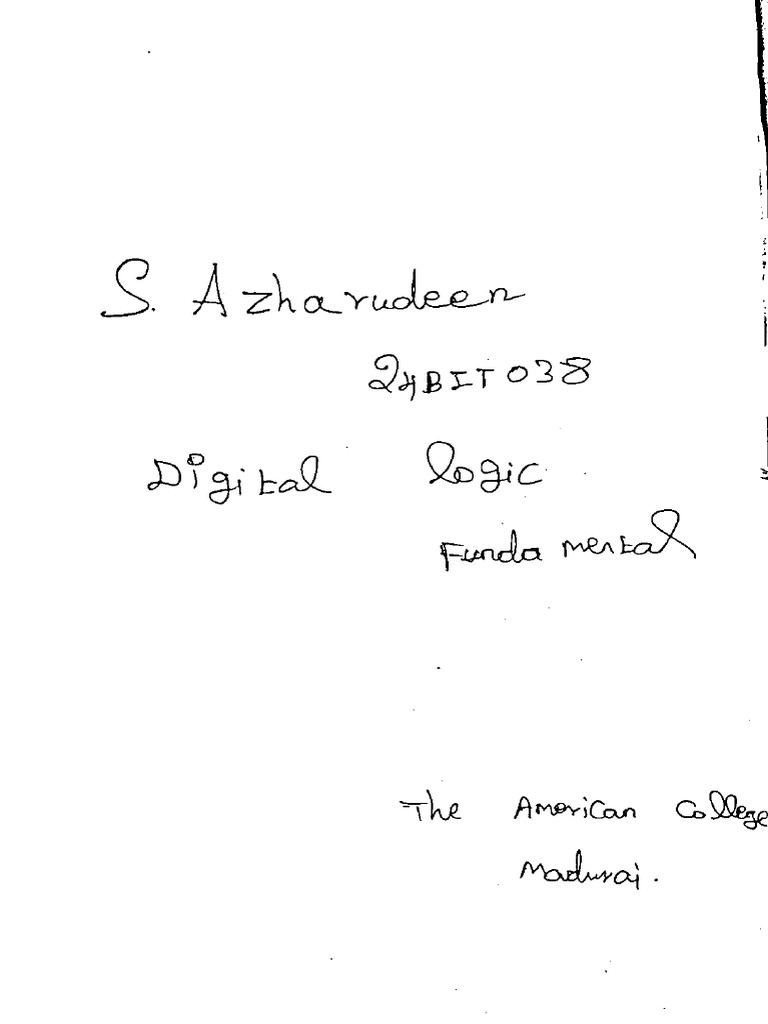 S. Azharudeen
24BIT038
Digital logic
Fundamental
The American College
Madurai.